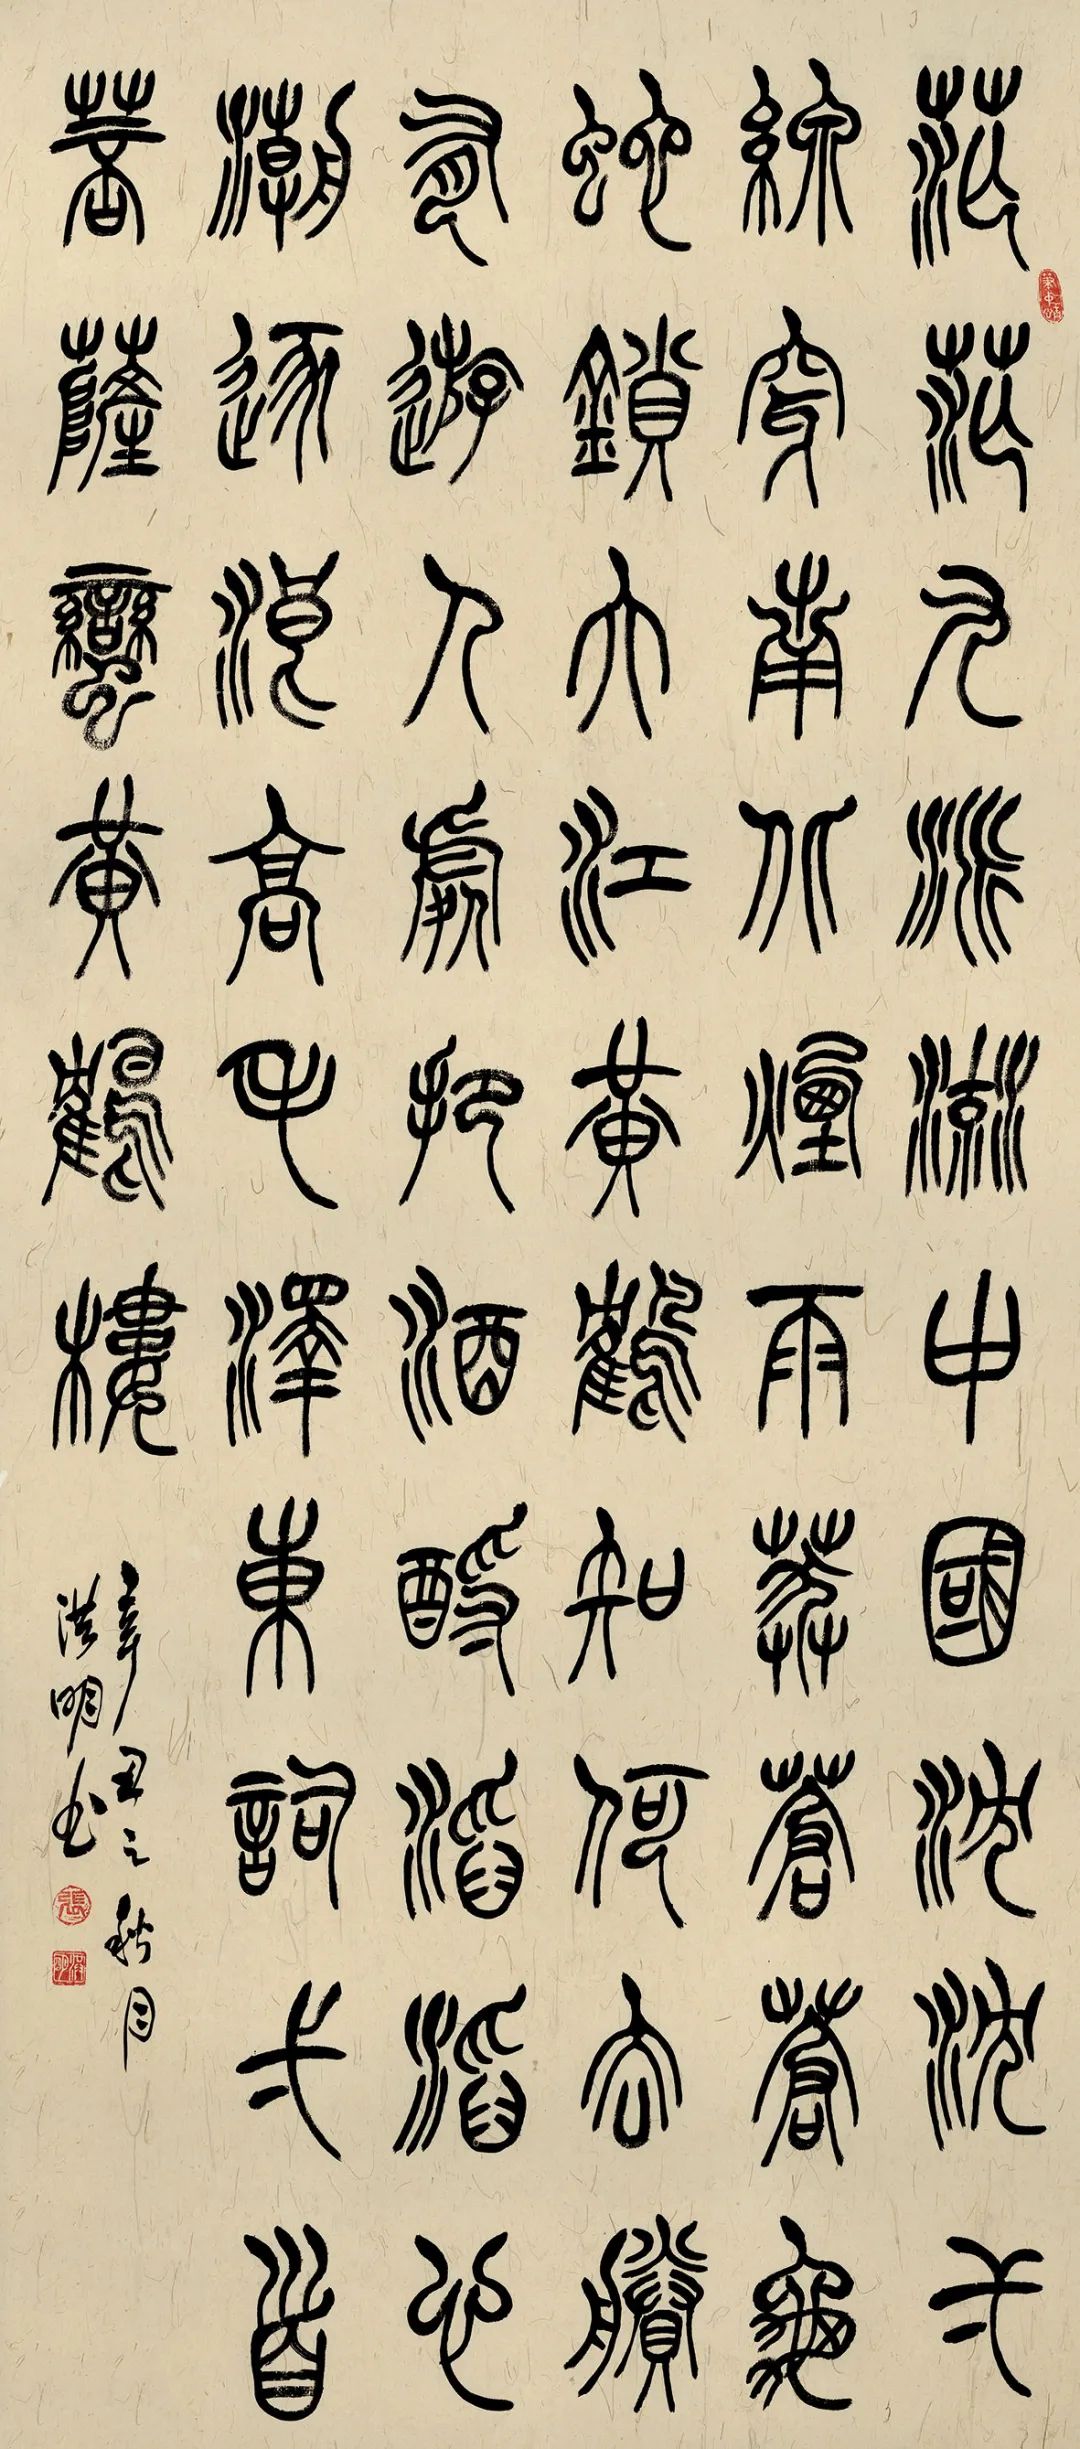 茫茫九派流中國沈沈一
線穿南北煙雨莽蒼蒼龜
蛇鎖大江黃鶴知何去賸
有遊人處把酒酹滔滔心
潮逐浪高毛澤東詞一首
菩薩蠻黃鶴樓
辛丑之秋月
洪明书
張
洪明